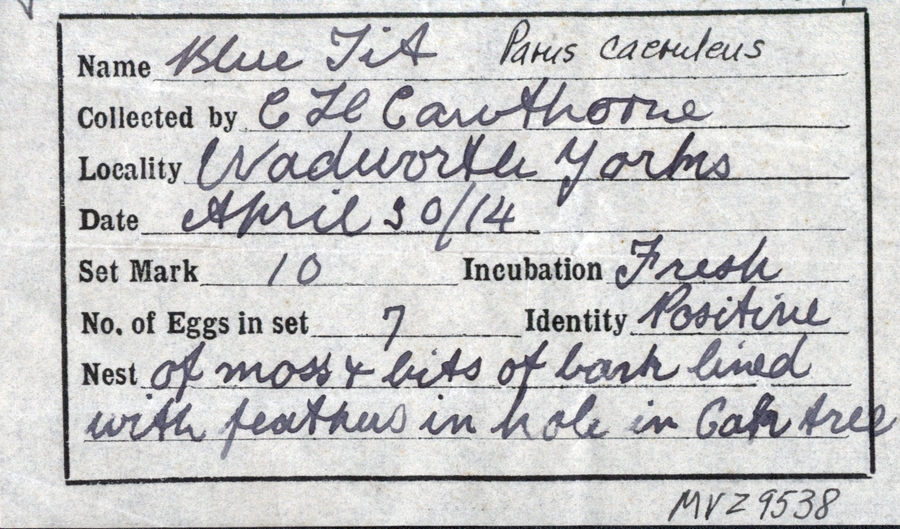 Name Blue Tit Parus caeruleus
Collected by C H Cawthorne
Locality Wadworth Yorks
Date April 30/14
Set Mark 10 Incubation Fresh
No. of Eggs in set 7 Identity Positive
Nest of moss & bits of bark lined
with feathers in hole in Oak tree
MVZ 9538